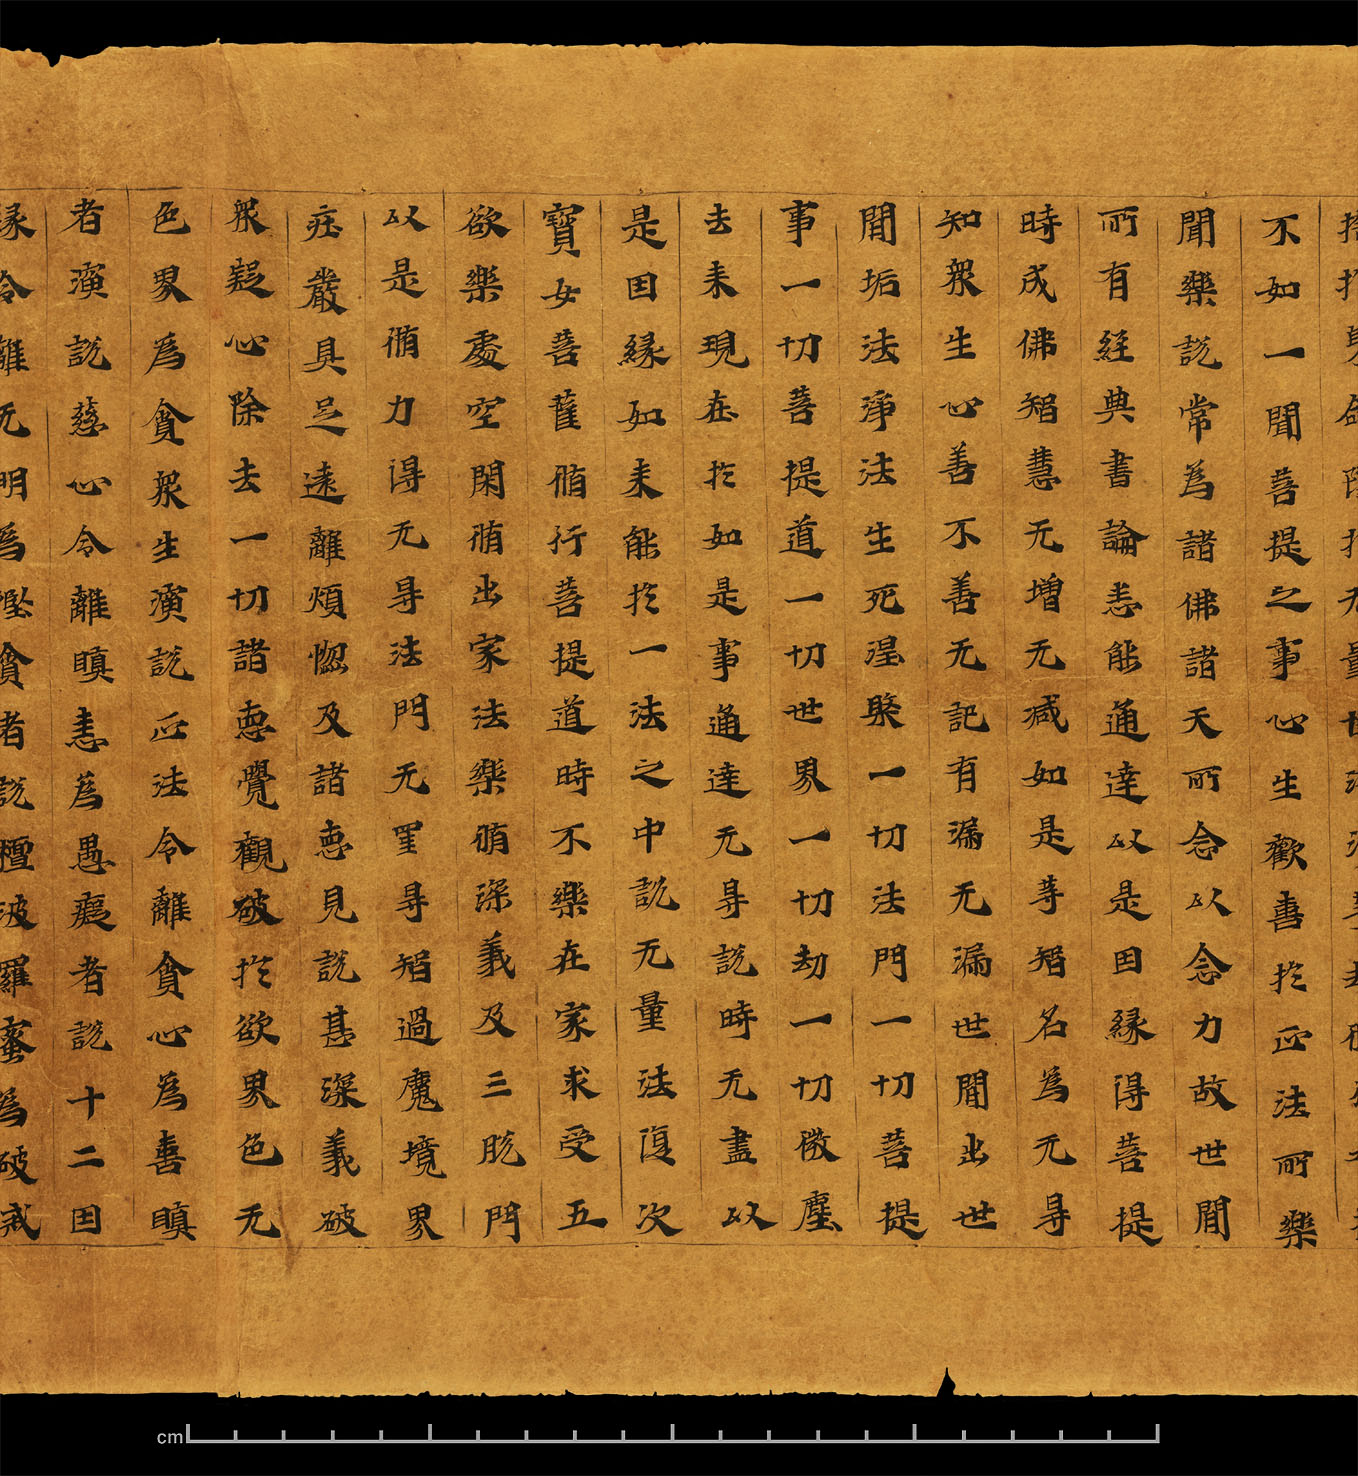 不如一聞菩提之事心生歡喜於正法所樂
聞樂說常為諸佛諸天所念以念力故世間
所有經典書論悉能通達以是因緣得菩提
時成佛智慧无增无減如是等智名為无㝵
知衆生心善不善无記有漏无漏世間出世
間垢法淨法生死涅槃一切法門一切菩提
事一切菩提道一切世界一切劫一切微塵
去来現在於如是事通達无㝵說時无盡以
是因緣如来能於一法之中說无量法復次
寶女菩薩脩行菩提道時不樂在家求受五
欲樂處空閑脩出家法樂脩深義及三脫門
以是脩力得无㝵法門无罣㝵智過魔境界
莊嚴具足遠離煩惱及諸惡見說甚深義破
衆疑心除去一切諸惡覺觀破於欲界色无
色界為貪衆生演說正法令離貪心為喜瞋
者演說慈心令離瞋恚為愚癡者說十二因
緣令離无明為慳貪者說檀波羅蜜為破戒
cm